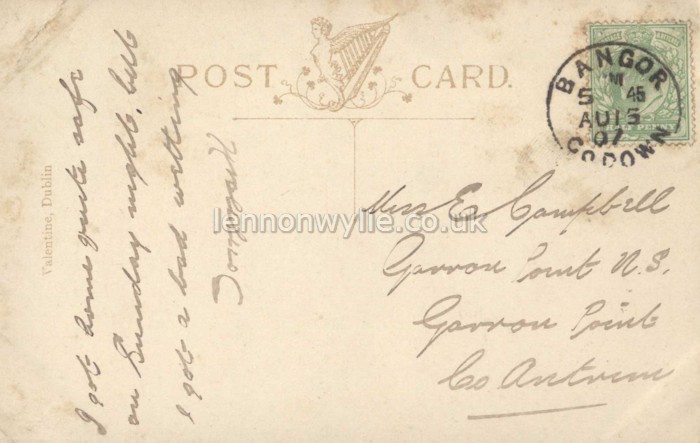 POST CARD.
BANGOR
5 45
AU 15
07
CO DOWN
HALF PENNY
Valentine, Dublin
I got home quite safe
on Sunday night, but
I got a bad wetting
Miss E. Campbell
Garron Point N.S.
Garron Point
Co Antrim
lennonwylie.co.uk